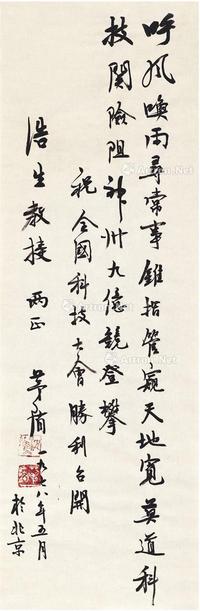 呼风唤雨寻常事锥指管窥天地宽莫道科
技关险阻神州九億竞登攀
祝全国科技大会胜利召開
浩生教授 两正
茅盾 一九七八年五月
於北京